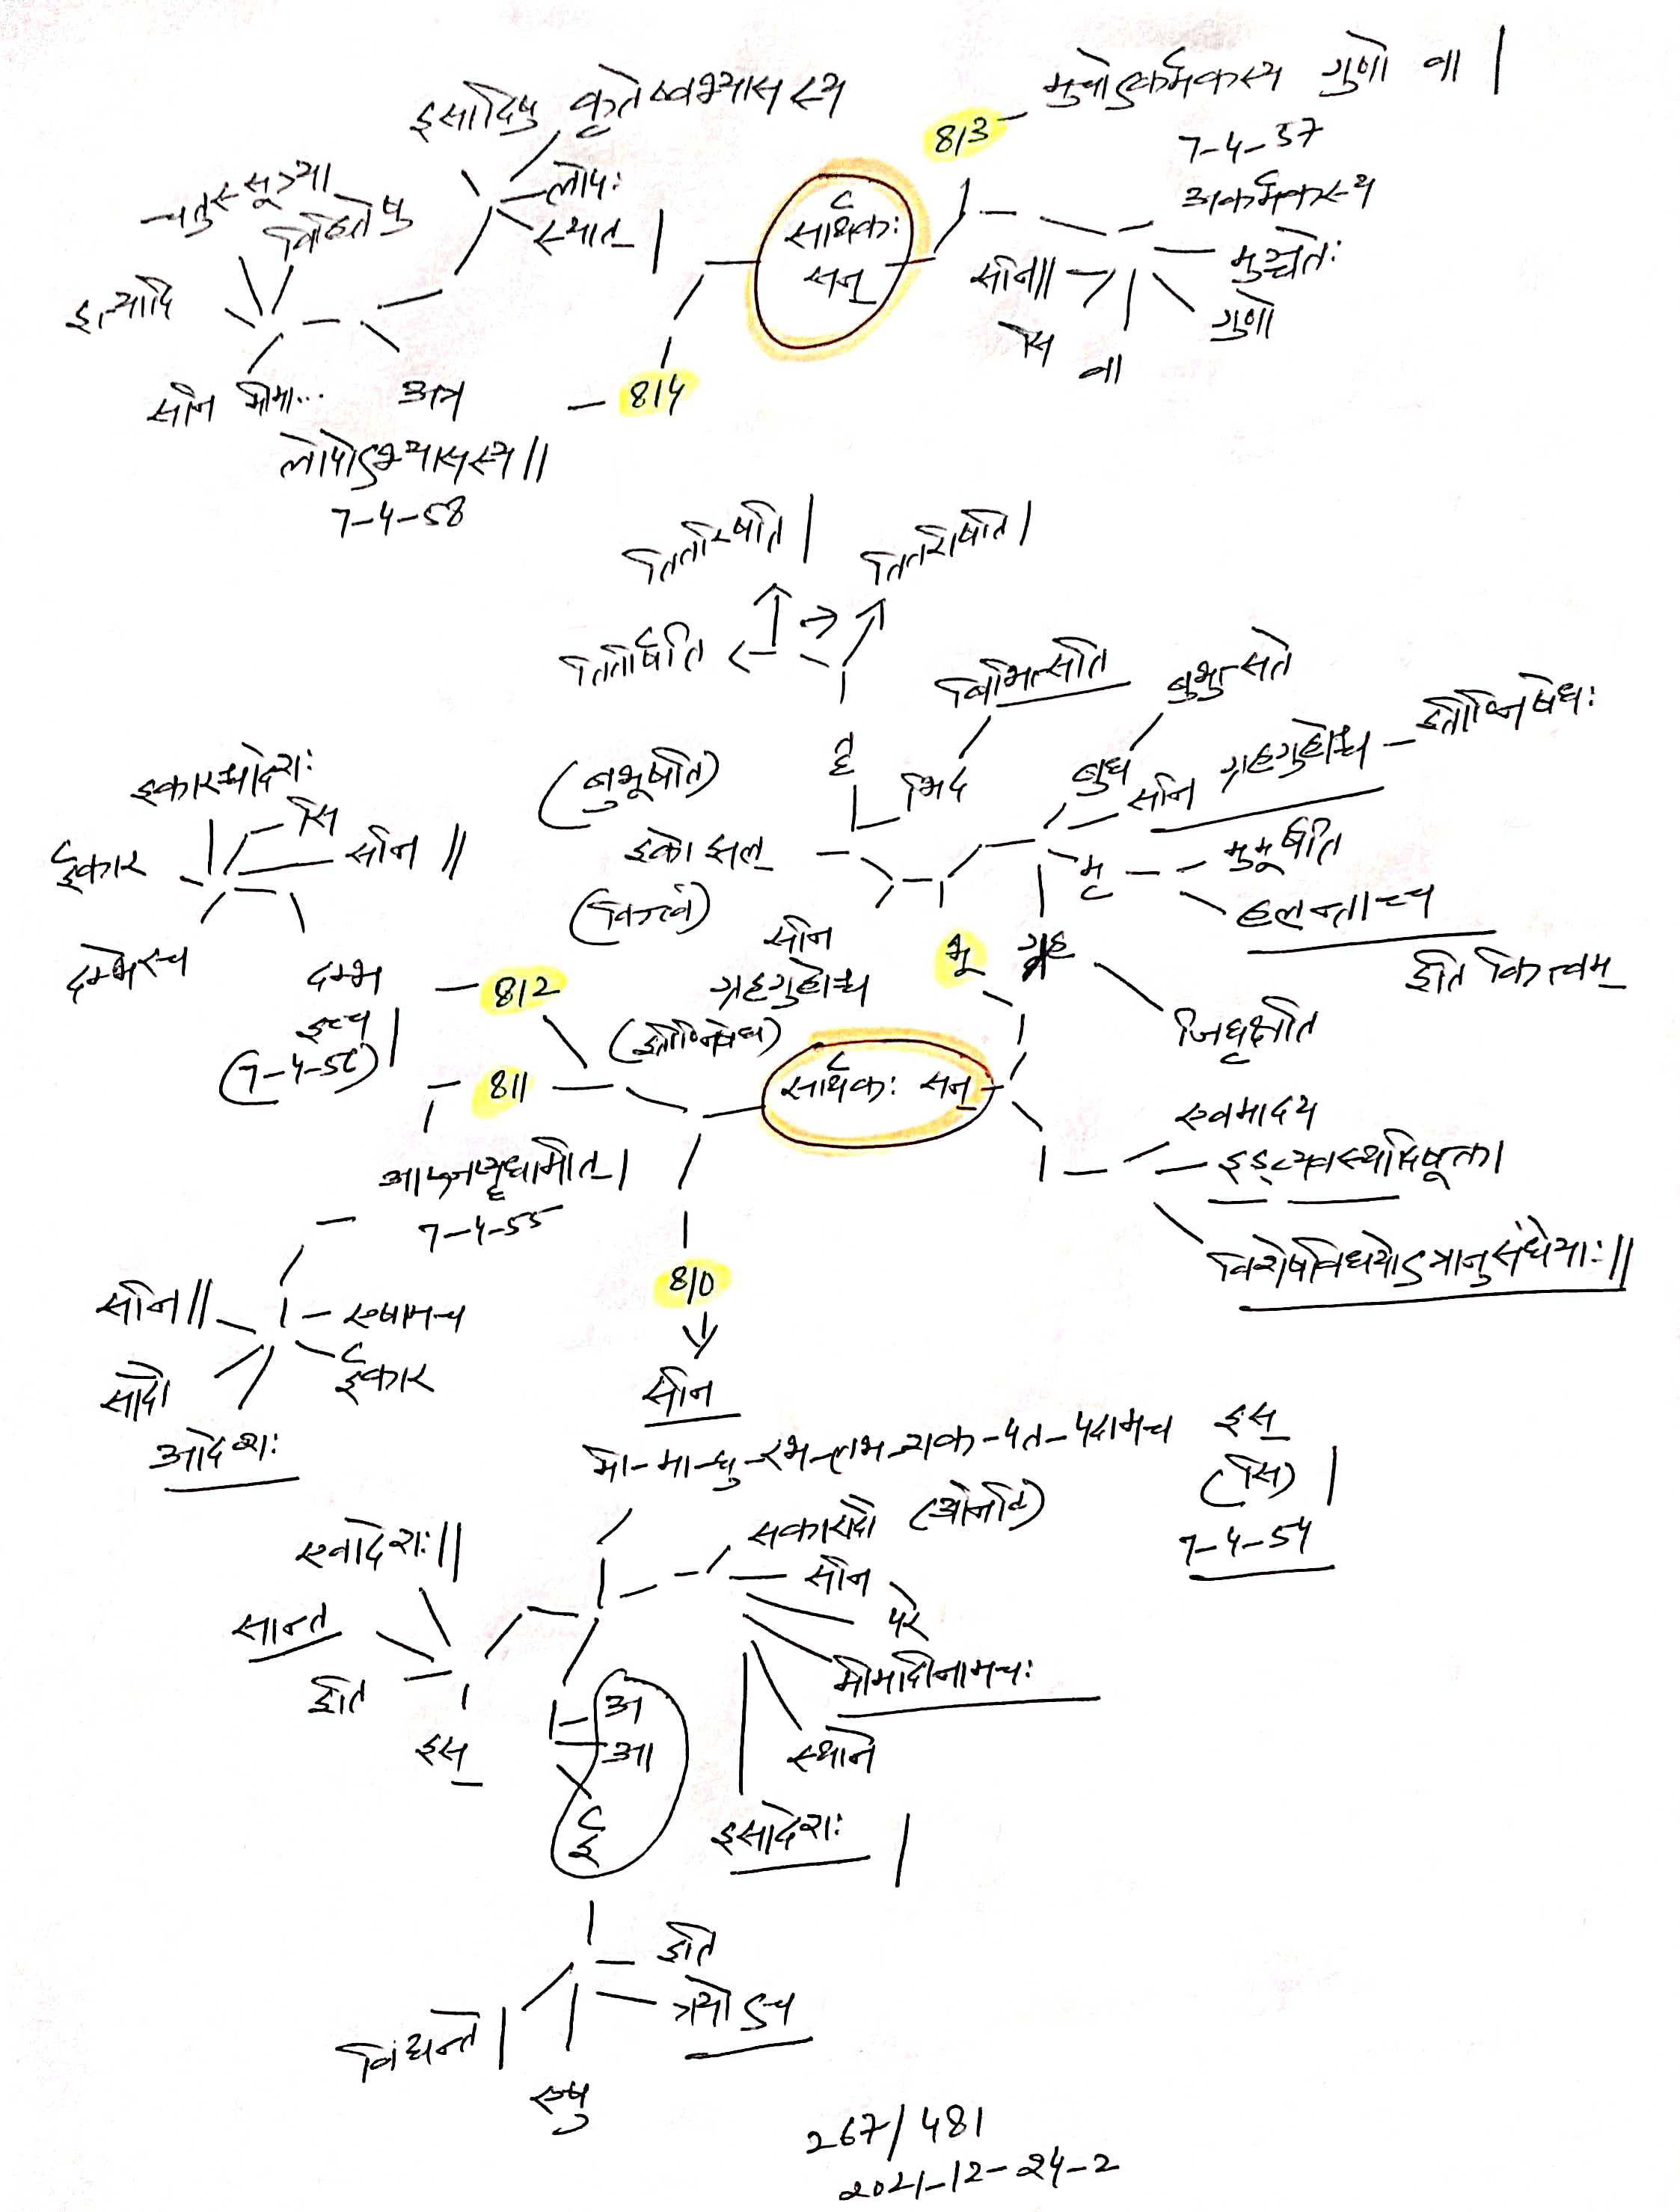 इसादिषु कृतेष्वभ्यासस्य
लोपः
स्यात् |
चतुस्सूत्र्या
विहितेषु
इत्यादि
सनि मीमा...
अत्र
लोपोऽभ्यासस्य ||
7-4-58
814
सार्थकः
सन्
813
मुचोऽकर्मकस्य गुणो वा |
7-4-57
अकर्मकस्य
मुञ्चतेः
गुणो
वा
सि
सनि ||
तितरिषति |
तितरीषति |
तितीर्षति
तॄ
भिद
बिभित्सति
बुध
बुभुत्सते
सनि ग्रहगुहोश्च - इतीण्निषेधः
मृ
मुमूर्षति
हलन्ताच्च
इति कित्त्वम्
ग्रह
जिघृक्षति
भू
(बुभूषति)
इको झल्
(कित्वं)
सनि
ग्रहगुहोश्च
(इतीण्निषेध)
सार्थकः सन्
एवमादय
इड्व्यवस्थादिषूक्ता
विशेषविधयोऽत्रानुसंधेयाः ||
इकारश्चादेशः
सि
सनि ||
ईकार
दम्भेरच
दम्भ
इच्च |
(7-4-56)
812
811
आप्ज्ञप्यृधामीत् |
7-4-55
एषामच
ईकार
आदेशः
सादौ
सनि ||
810
सनि
मी-मा-घु-रभ-लभ-शक-पत-पदामच इस्
(सि) |
7-4-54
सकारादौ (अनिटि)
सनि
परे
मीमादीनामचः
स्थाने
इसादेशः |
एवादेशः ||
सान्त
इति
इस्
अ
आ
ई
इति
त्रयोऽच
एषु
विद्यन्ते |
267/481
2021-12-24-2